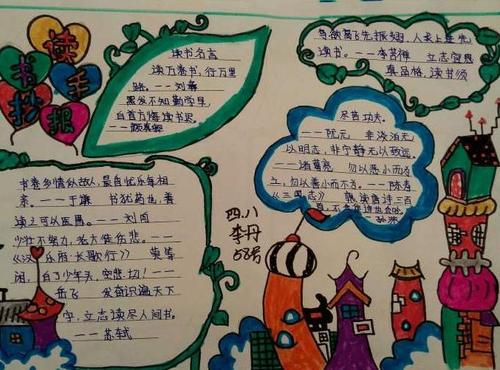 读书手抄报
读书名言
读万卷书，行万里
路。——刘彝
黑发不知勤学早，
白首方悔读书迟。
——颜真卿
鸟欲高飞先振翅，人求上进先
读书。——李苦禅 立志宜思
真品格，读书须
尽苦功夫。
——阮元 非淡泊无
以明志，非宁静无以致远。
——诸葛亮 勿以恶小而为
之，勿以善小而不为。——陈寿
《三国志》 熟读唐诗三百
书卷多情似故人，晨昏忧乐每相
亲。——于谦 书犹药也，善
读之可以医愚。——刘向
少壮不努力，老大徒伤悲。——
《汉乐府·长歌行》 莫等
闲，白了少年头，空悲切！——
岳飞 发奋识遍天下
字，立志读尽人间书。
——苏轼
四.八
李丹
58号